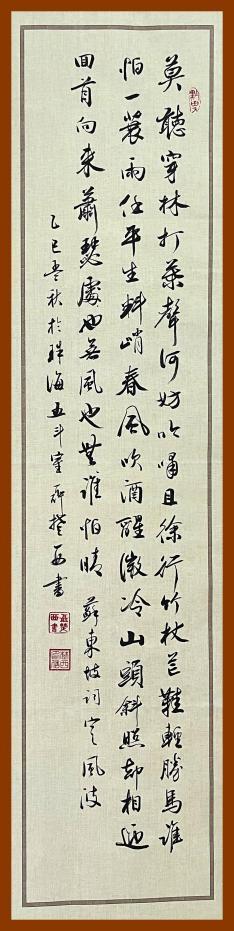 莫聽穿林打葉聲何妨吟嘯且徐行竹杖芒鞋輕勝馬誰
怕一蓑雨任平生料峭春風吹酒醒微冷山頭斜照却相迎
回首向来蕭瑟處也无風也無誰怕晴 蘇東坡詞定風波
乙巳秋於珠海五斗室聶楚西書
聶楚西書